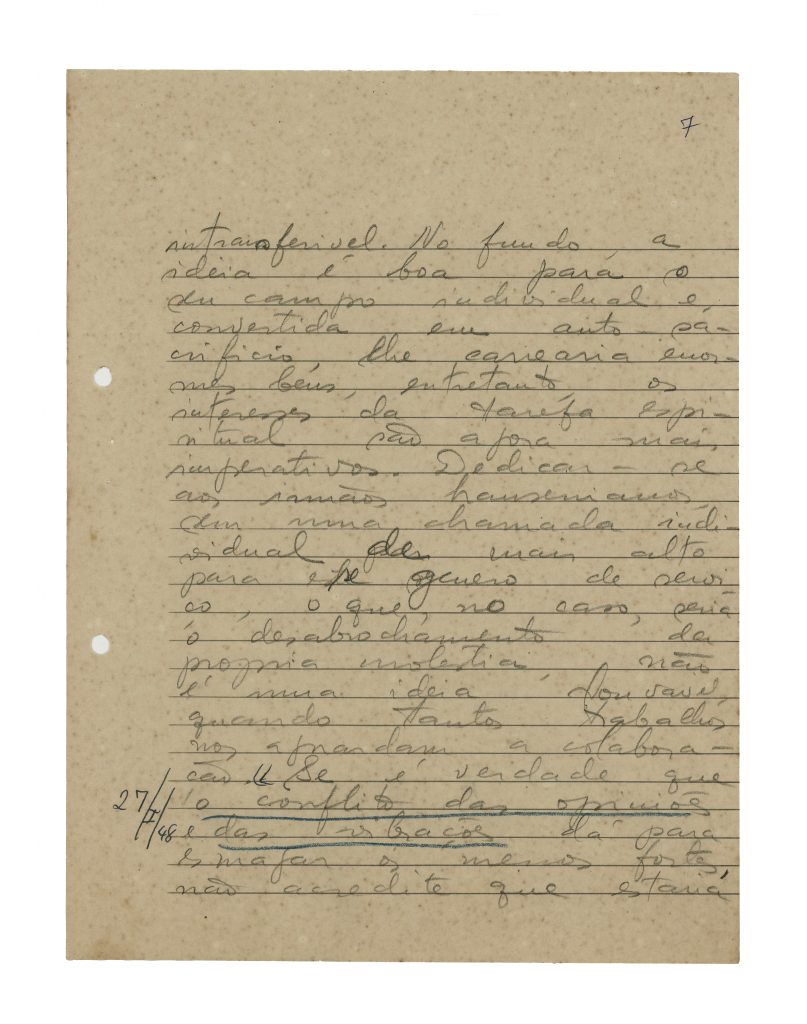 7
intransferivel. No fundo, a
ideia é boa para o
seu campo individual e,
convertida em auto-sa-
crificio, lhe carrearia enor-
mes bens, entretanto, os
interesses da tarefa espi-
ritual são agora mais
imperativos. Dedicar-se
aos irmãos hansenianos,
sem uma chamada indi-
vidual do mais alto
para esse genero de servi-
ço, o que, no caso, seria
o desabrochamento da
propria molestia, não
é uma ideia louvavel,
quando tantos trabalhos
nos aguardam a colabora-
ção. Se é verdade que
o conflito das opiniões
e das vibrações dá para
esmagar os menos fortes,
não acredite que estaria
27/I/48